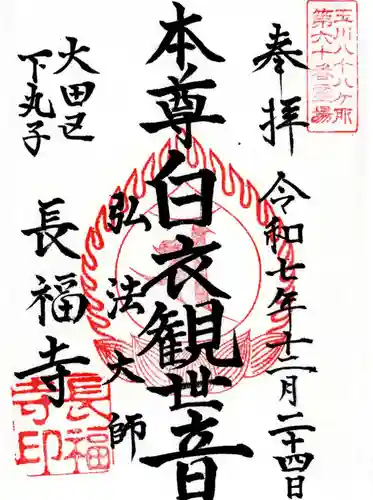 玉川八十八ケ所
第六十番霊場
奉拝
令和七年十二月二十四日
本尊白衣観世音
弘法大師
大田区
下丸子
長福寺
長福
寺印